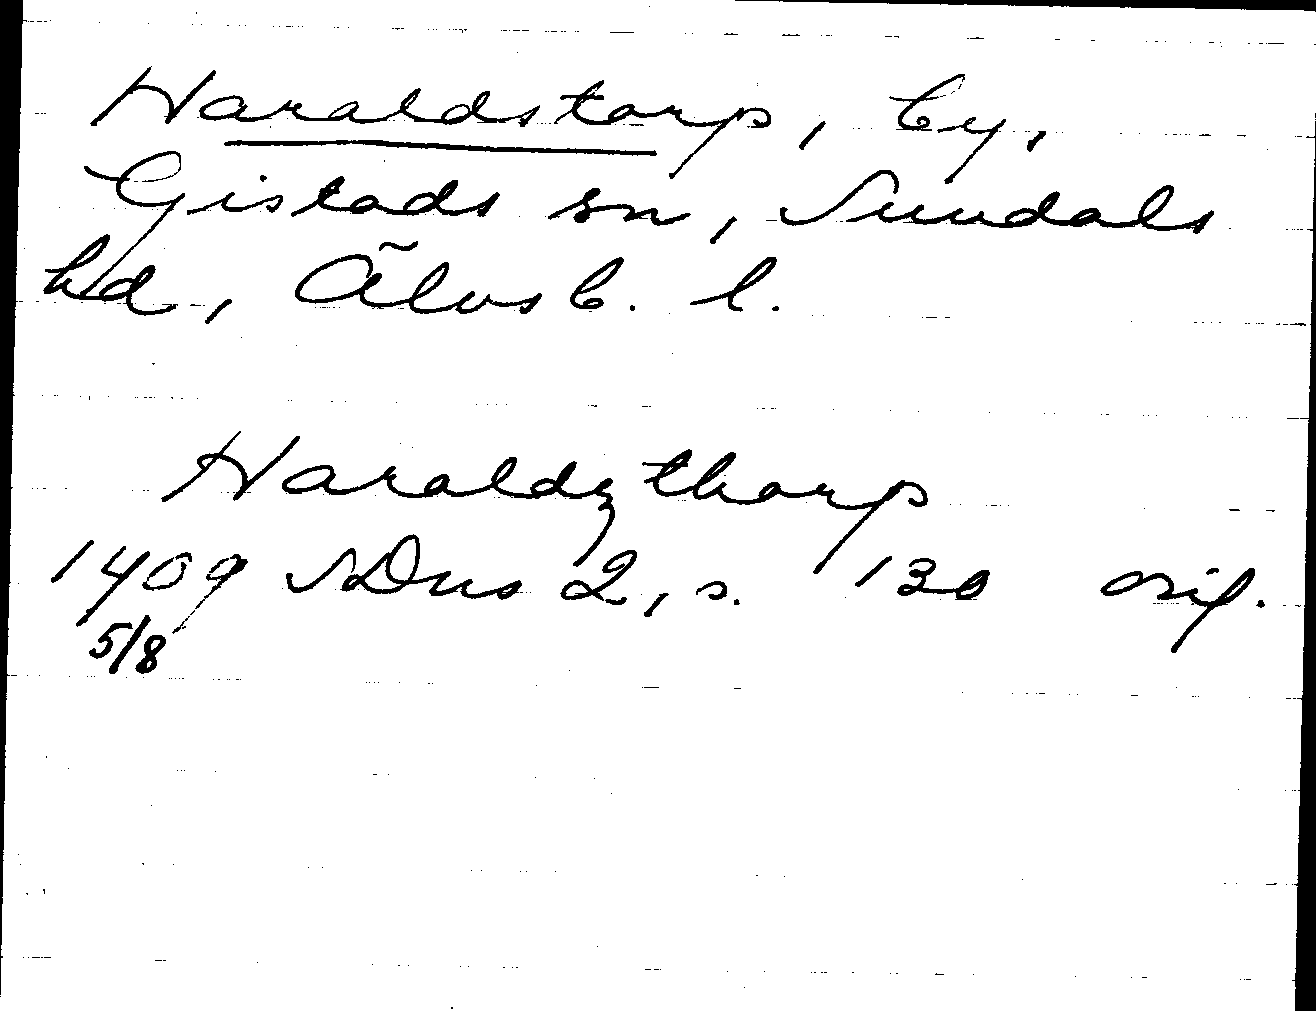 Haraldstorp, by,
Gistads sn, Sundals
hd, Älvsb. l.
Haraldzthorp
1409 SDns 2, s. 130 orig.
5/8